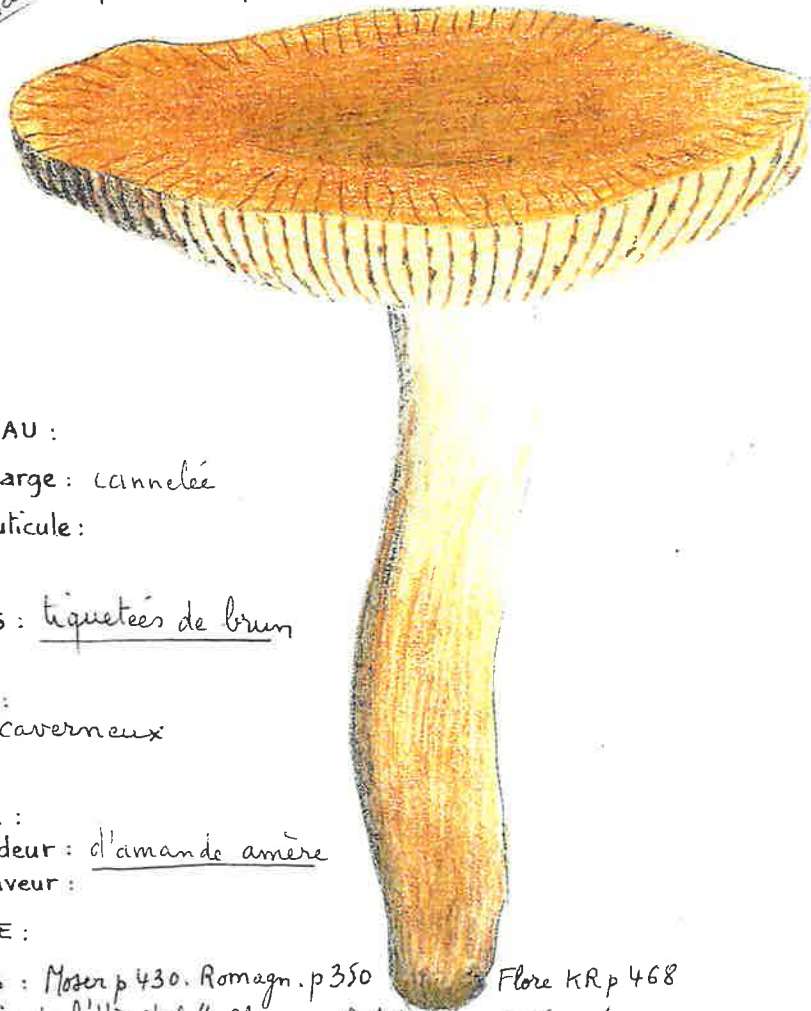 AU :
arge : cannelée
uticule :
s : tiquetées de brun
:
caverneux
:
deur : d'amande amère
veur :
E :
: Moser p 430. Romagn. p 350 Flore KR p 468